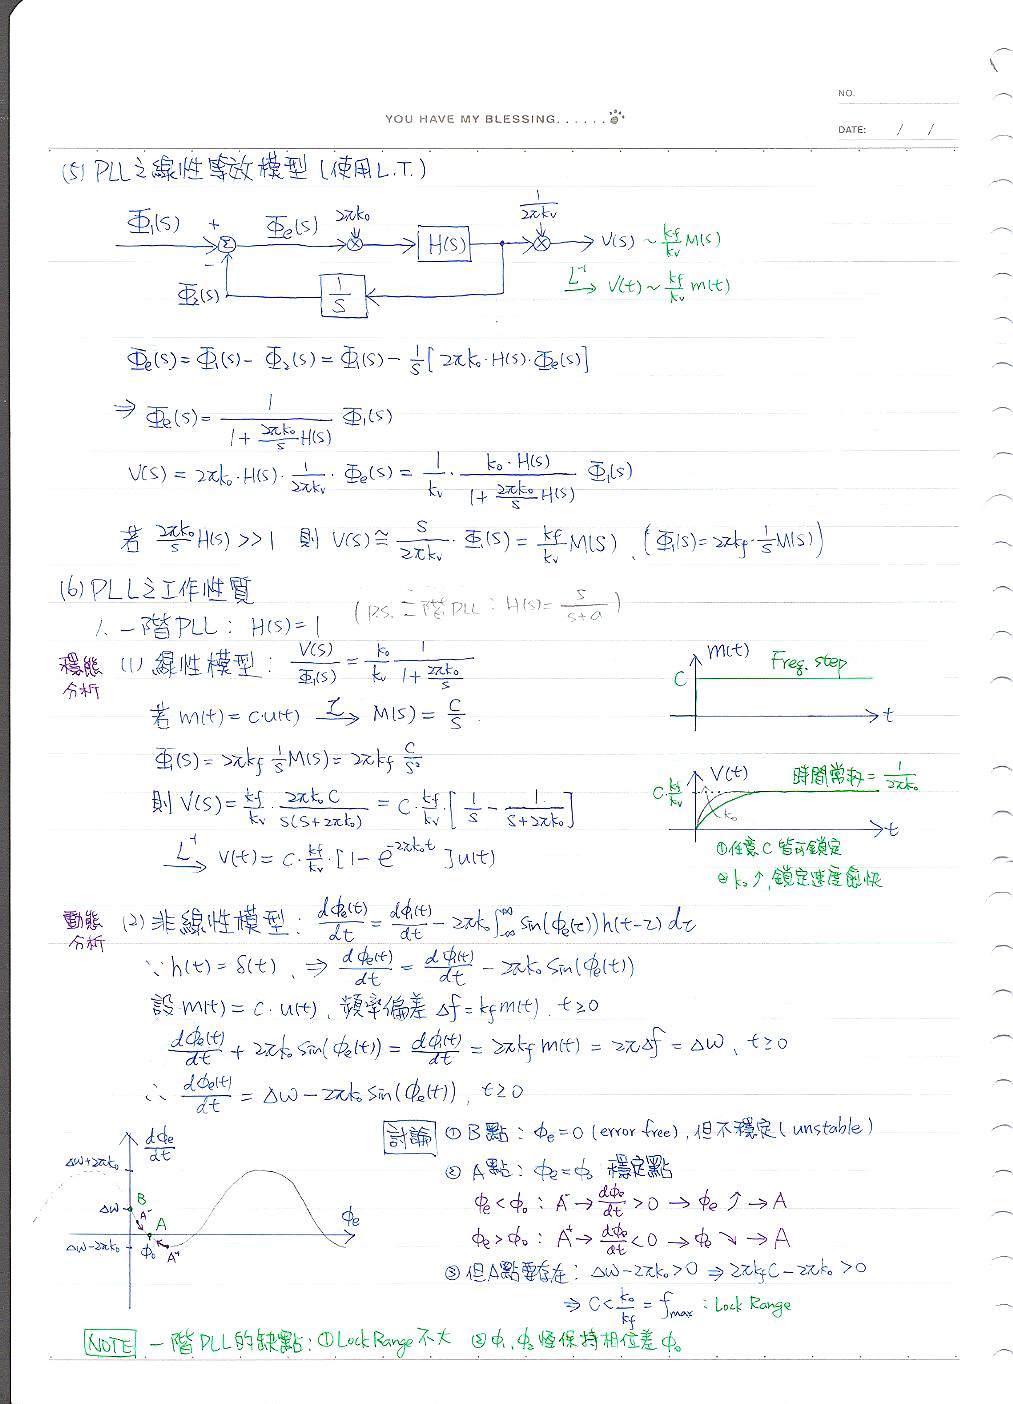 NO.
YOU HAVE MY BLESSING......
DATE: / /
(5) PLL之線性等效模型 (使用L.T.)
Φ₁(s) + Σ − Φe(s) 2πk₀ ⊗ H(s) 1/2πkv ⊗ → V(s) ~ kf/kv M(s)
Φ₂(s) 1/S L⁻¹→ V(t) ~ kf/kv m(t)
Φe(s) = Φ₁(s) − Φ₂(s) = Φ₁(s) − 1/S [2πk₀·H(s)·Φe(s)]
⇒ Φe(s) = 1/(1+ 2πk₀/S H(s)) Φ₁(s)
V(s) = 2πk₀·H(s)·1/2πkv·Φe(s) = 1/kv · k₀·H(s)/(1+ 2πk₀/S H(s)) Φ₁(s)
若 2πk₀/S H(s) >> 1 則 V(s) ≅ S/2πkv · Φ₁(s) = kf/kv M(s), (Φ₁(s) = 2πkf·1/S M(s))
(6) PLL之工作性質
1. 一階PLL: H(s)=1 (P.S. 二階PLL: H(s)= S/(S+a))
穩態分析 (1) 線性模型: V(s)/Φ₁(s) = k₀/kv 1/(1+ 2πk₀/S)
m(t) Freq. step C t
若 m(t) = c·u(t) L→ M(s) = C/S.
Φ₁(s) = 2πkf 1/S M(s) = 2πkf C/S²
則 V(s) = kf/kv · 2πk₀C/(S(S+2πk₀)) = C·kf/kv·[1/S − 1/(S+2πk₀)]
C·kf/kv V(t) 時間常數 = 1/2πk₀ k₀ t
L⁻¹→ V(t) = C·kf/kv·[1−e^(−2πk₀t)]u(t)
①任意C皆可鎖定
②k₀↑, 鎖定速度愈快
動態分析 (2) 非線性模型: dφe(t)/dt = dφ₁(t)/dt − 2πk₀∫_{-∞}^{∞} sin(φe(τ))h(t−τ)dτ
∵ h(t) = δ(t), ⇒ dφe(t)/dt = dφ₁(t)/dt − 2πk₀ sin(φe(t))
設 m(t) = c·u(t), 頻率偏差 Δf = kf m(t), t≥0
dφe(t)/dt + 2πk₀ sin(φe(t)) = dφ₁(t)/dt = 2πkf m(t) = 2πΔf = Δω, t≥0
∴ dφe(t)/dt = Δω − 2πk₀ sin(φe(t)), t≥0
dφe/dt Δω+2πk₀ Δω Δω−2πk₀ B A⁻ A A⁺ φ₀ φe
討論 ①B點: φe=0 (error free), 但不穩定 (unstable)
②A點: φe=φ₀ 穩定點
φe<φ₀: A⁻ → dφe/dt >0 → φe ↗ → A
φe>φ₀: A⁺ → dφe/dt <0 → φe ↘ → A
③但A點要存在: Δω−2πk₀>0 ⇒ 2πkfC−2πk₀>0
⇒ C < k₀/kf = fmax : Lock Range
NOTE 一階PLL的缺點: ①Lock Range不大 ②φ₁, φ₂恆保持相位差φ₀